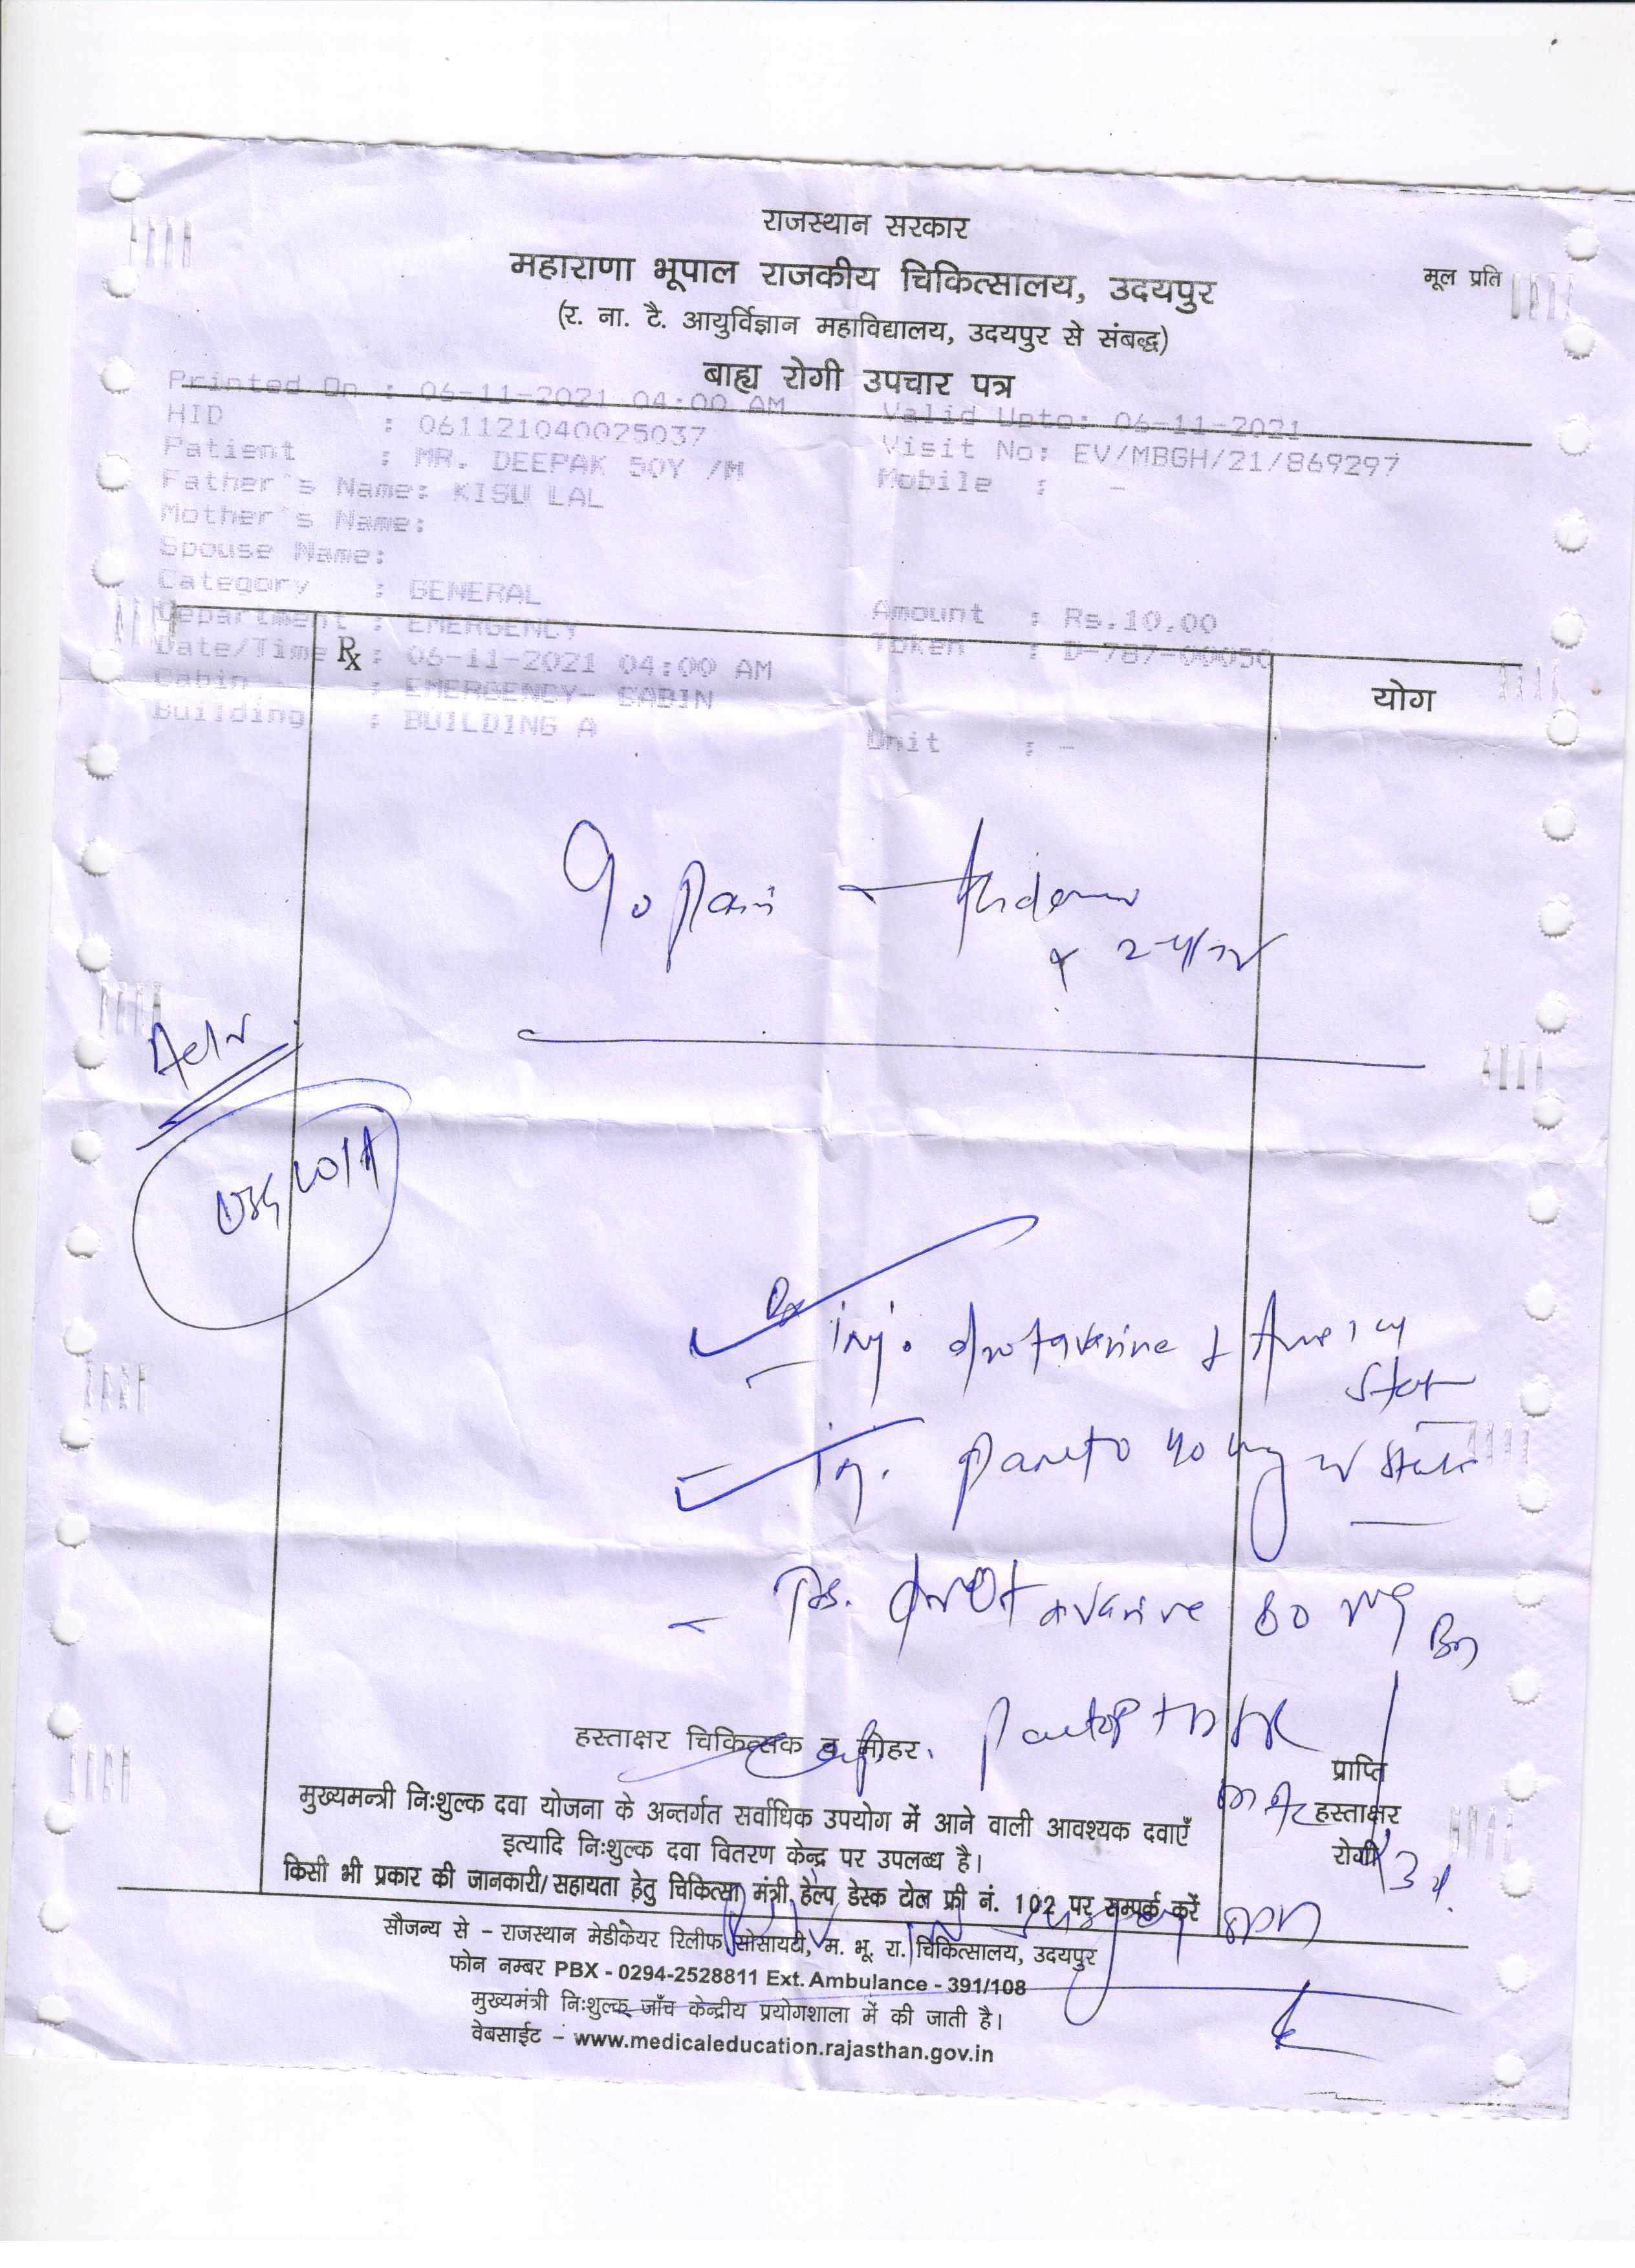 राजस्थान सरकार
महाराणा भूपाल राजकीय चिकित्सालय, उदयपुर
मूल प्रति
(र. ना. टै. आयुर्विज्ञान महाविद्यालय, उदयपुर से संबद्ध)
बाह्य रोगी उपचार पत्र
Printed On : 06-11-2021 04:00 AM Valid Upto: 06-11-2021
HID : 061121040025037 Visit No: EV/MBGH/21/869297
Patient : MR. DEEPAK 50Y /M Mobile : -
Father's Name: KISU LAL
Mother's Name:
Spouse Name:
Category : GENERAL Amount : Rs.10.00
Department : EMERGENCY Token : D-787-00050
Date/Time : 06-11-2021 04:00 AM
Rx
Cabin : EMERGENCY- CABIN
योग
Building : BUILDING A Unit : -
pain
Adv
Rx
inj. drotaverine
Stat
inj. panto 40 mg
Tab. drotaverine 80 mg
हस्ताक्षर चिकित्सक व मोहर.
प्राप्ति
हस्ताक्षर
रोगी
मुख्यमन्त्री निःशुल्क दवा योजना के अन्तर्गत सर्वाधिक उपयोग में आने वाली आवश्यक दवाएँ
इत्यादि निःशुल्क दवा वितरण केन्द्र पर उपलब्ध है।
किसी भी प्रकार की जानकारी/सहायता हेतु चिकित्सा मंत्री हेल्प डेस्क टोल फ्री नं. 102 पर सम्पर्क करें
सौजन्य से - राजस्थान मेडीकेयर रिलीफ सोसायटी, म. भू. रा. चिकित्सालय, उदयपुर
फोन नम्बर PBX - 0294-2528811 Ext. Ambulance - 391/108
मुख्यमंत्री निःशुल्क जाँच केन्द्रीय प्रयोगशाला में की जाती है।
वेबसाईट - www.medicaleducation.rajasthan.gov.in